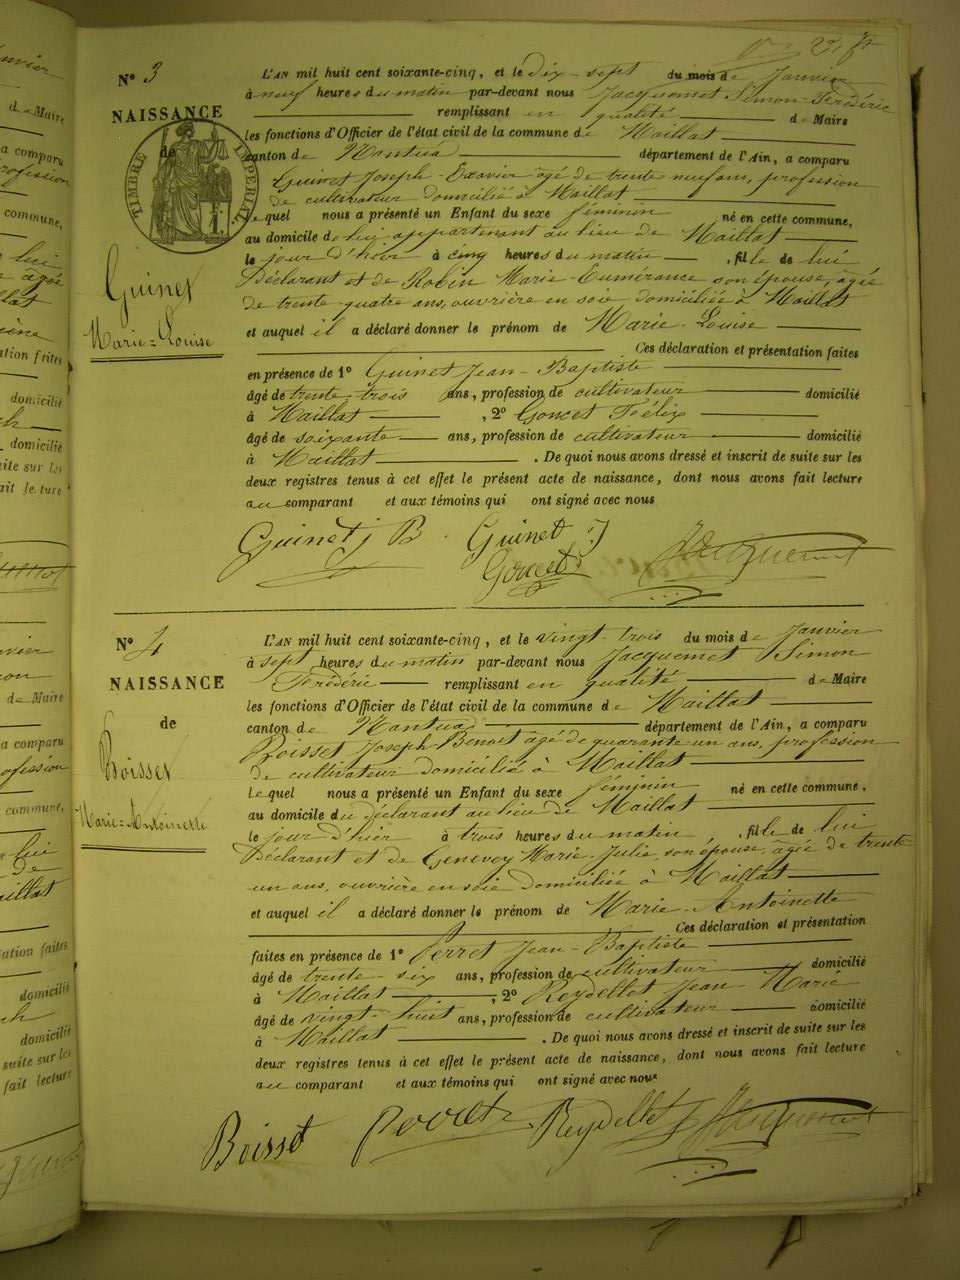 N° 3
NAISSANCE
de
TIMBRE IMPERIAL
Guinet
Marie=Louise
L'AN mil huit cent soixante-cinq, et le dix-sept du mois de Janvier
à neuf heures du matin par-devant nous Jacquemet Simon-Frédéric
remplissant en qualité de Maire
les fonctions d'Officier de l'état civil de la commune de Maillat
canton de Nantua département de l'Ain, a comparu
Guinet Joseph-Exavier âgé de trente neuf ans, profession
de cultivateur domicilié à Maillat
Le quel nous a présenté un Enfant du sexe féminin né en cette commune,
au domicile de lui appartenant au lieu de Maillat
le jour d'hier à cinq heures du matin, fille de lui
Déclarant et de Robin Marie-Eumérance son épouse, âgée
de trente-quatre ans, ouvrière en soie domiciliée à Maillat
et auquel il a déclaré donner le prénom de Marie-Louise
Ces déclaration et présentation faites
en présence de 1° Guinet Jean-Baptiste
âgé de trente-trois ans, profession de cultivateur domicilié
à Maillat, 2° Goncet Félix
âgé de soixante ans, profession de cultivateur domicilié
à Maillat. De quoi nous avons dressé et inscrit de suite sur les
deux registres tenus à cet effet le présent acte de naissance, dont nous avons fait lecture
au comparant et aux témoins qui ont signé avec nous
Guinet j B Guinet J
Goncet Jacquemet
N° 4
NAISSANCE
de
Boisset
Marie=Antoinette
L'AN mil huit cent soixante-cinq, et le vingt-trois du mois de Janvier
à sept heures du matin par-devant nous Jacquemet Simon
Frédéric remplissant en qualité de Maire
les fonctions d'Officier de l'état civil de la commune de Maillat
canton de Nantua département de l'Ain, a comparu
Boisset Joseph Benoit âgé de quarante un ans, profession
de cultivateur domicilié à Maillat
Le quel nous a présenté un Enfant du sexe féminin né en cette commune,
au domicile du déclarant au lieu de Maillat
le jour d'hier à trois heures du matin, fille de lui
Déclarant et de Genevoy Marie-Julie, son épouse, âgée de trente
un ans, ouvrière en soie domiciliée à Maillat
et auquel il a déclaré donner le prénom de Marie-Antoinette
Ces déclaration et présentation
faites en présence de 1° Perret Jean-Baptiste
âgé de trente-six ans, profession de cultivateur domicilié
à Maillat, 2° Reydellet Jean-Marie
âgé de vingt-huit ans, profession de cultivateur domicilié
à Maillat. De quoi nous avons dressé et inscrit de suite sur les
deux registres tenus à cet effet le présent acte de naissance, dont nous avons fait lecture
au comparant et aux témoins qui ont signé avec nous
Boisset Perret Reydellet Jacquemet